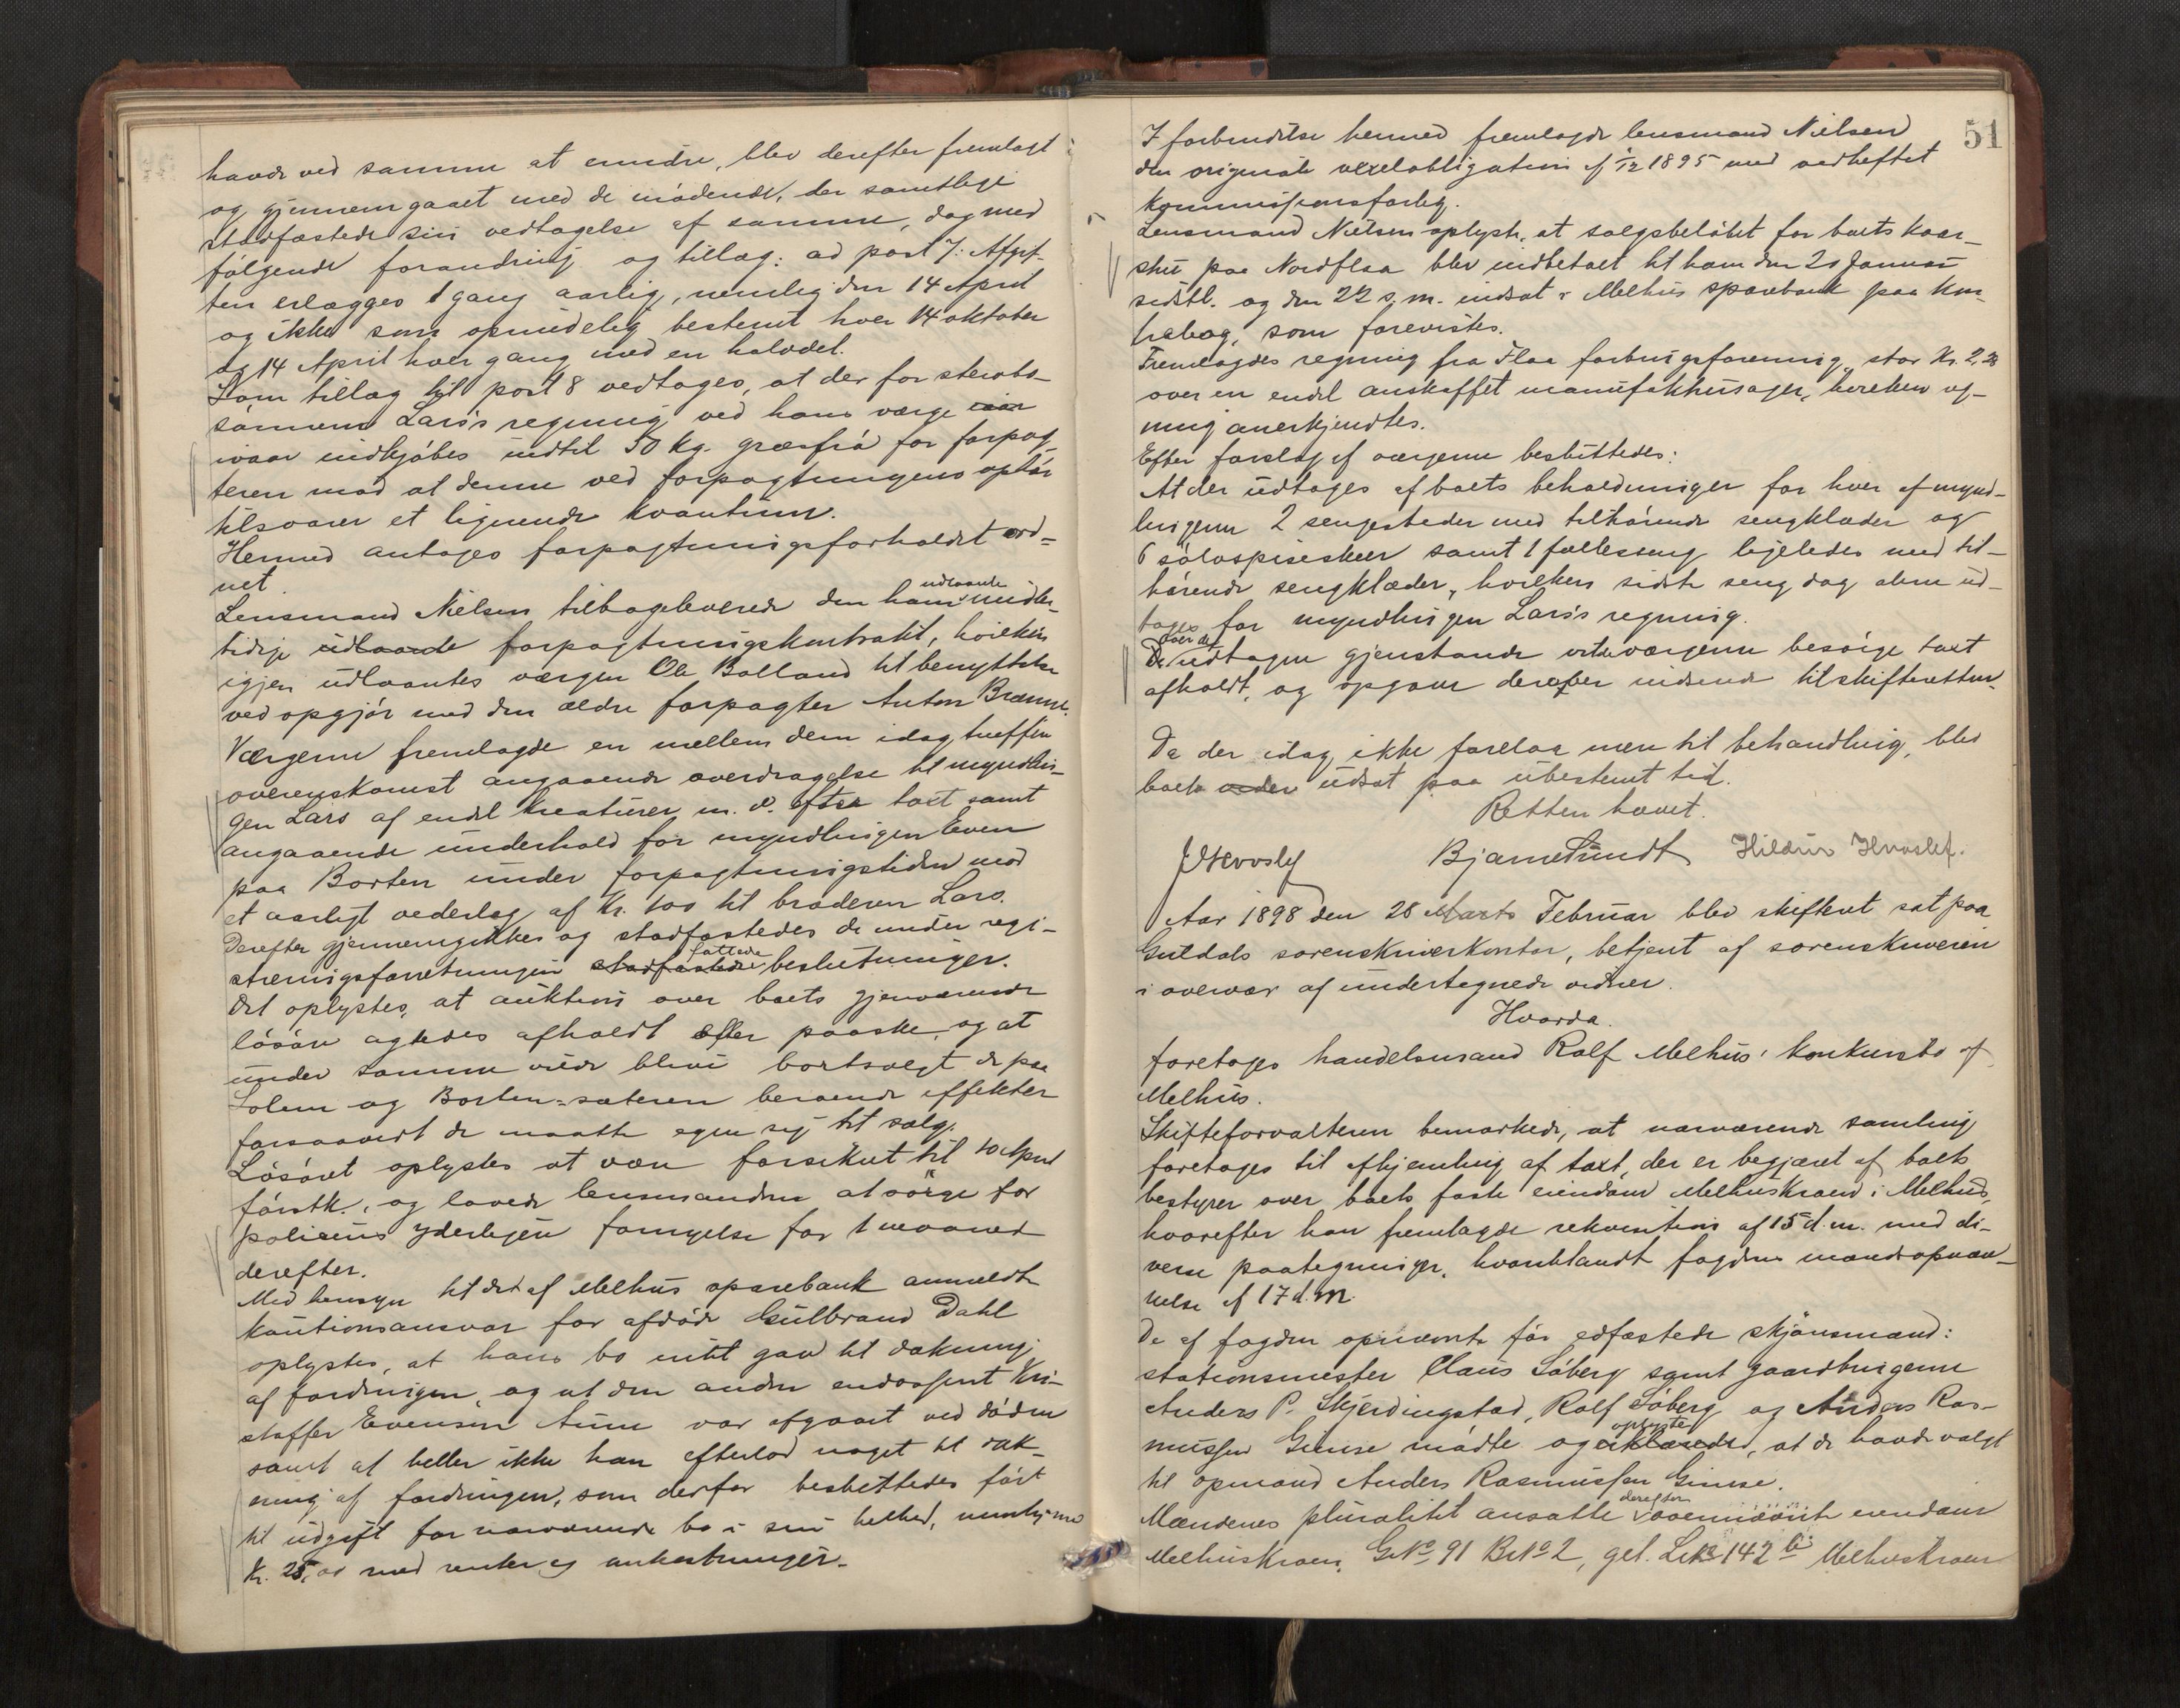 havde ved samme at erindre, blev derefter fremlagt
og gjennemgaaet med de mødende, der samtlige
stadfæstede sin vedtagelse af samme, dog med
følgende forandring og tillæg: ad post 7: Afgif-
ten erlægges 1 gang aarlig, nemlig den 14 April
og ikke som opmidelig bestemt hver 14 oktober
og 14 April hver gang med en halvdel.
Som tillæg til post 8 vedtages, at der for stervbo-
sønnens Lars's regning ved hans værge
ivaar indkjøbes indtil 50 kg. græsfrø for forpag-
teren mod at denne ved forpagtningens ophør
tilsvarer et lignende kvantum.
Hermed antages forpagtningsforholdet ord-
net.
Lensmand Nielsen tilbageleverede den ham udlaante midler-
tidige udlaante forpagtningskontrakt, hvilken
igjen udlaantes værgen Ole Bolland til benyttelse
ved opgjør med den ældre forpagter Anton Brænne.
Værgerne fremlagde en mellem dem idag truffen
overenskomst angaaende overdragelse til myndlin-
gen Lars af endel kreaturer m. v. efter taxt samt
angaaende underhold for myndlingen Even
paa Borten under forpagtningstiden mod
et aarligt vederlag af Kr. 100 til broderen Lars.
Derefter gjennemgikkes og stadfæstedes de under regi-
streringsforretningen stadfæstede fattede beslutninger.
Det oplystes, at auktion over boets gjenværende
løsøre agtedes afholdt efter paaske, og at
under samme vilde blive bortsolgt de paa
Solem og Borten-sæteren beroende effekter
forsaavidt de maatte egne sig til salg.
Løsøret oplystes at være forsikret til 10 April
førstk., og lovede lensmanden at sørge for
policens yderligere fornyelse for 1 maaned
derefter.
Med hensyn til det af Melhus sparebank anmeldte
kautionsansvar for afdøde Gulbrand Dahl
oplystes, at hans bo intet gav til dækning
af fordringen, og at den anden endossent Kri-
stoffer Evensen Aune var afgaaet ved døden
samt at heller ikke han efterlod noget til dæk-
ning af fordringen, som derfor besluttedes ført
til udgift for nærværende bo i sin helhed, nemlig med
Kr. 25,00 med renter og omkostninger.
51
I forbindelse hermed fremlagde lensmand Nielsen
den originale vexelobligation af 1/12 1895 med vedheftet
kommissionsforlig.
Lensmand Nielsen oplyste, at salgsbeløbet for boets kaar-
stue paa Nordflaa blev indbetalt til ham den 20 Januar
sidstl. og den 22 s. m. indsat i Melhus sparebank paa kon-
trabog, som forevistes.
Fremlagdes regning fra Flaa forbrugsforening, stor Kr. 2,28
over en endel anskaffet manufakturvarer, hvilken reg-
ning anerkjendtes.
Efter forslag af værgerne besluttedes:
At der udtages af boets beholdninger for hver af mynd-
lingerne 2 sengesteder med tilhørende sengklæder og
6 sølvspiseskeer samt 1 fællesseng ligeledes med til-
hørende sengklæder, hvilken sidste seng dog alene ud-
tages for myndlingen Lars's regning.
Over de udtagne gjenstande vilde værgerne besørge taxt
afholdt, og opgave derover indsende til skifteretten.
Da der idag ikke forelaa mere til behandling, blev
boets udsat paa ubestemt tid.
Retten hævet.
J Hvoslef Bjarne Sundt Hildur Hvoslef.
Aar 1898 den 28 Marts Februar blev skifteret sat paa
Guldals sorenskriverkontor, betjent af sorenskriveren
i overvær af undertegnede vidner.
Hvorda
foretoges handelsmand Rolf Melhus' konkursbo af
Melhus.
Skifteforvalteren bemærkede, at nærværende samling
foretages til afhjemling af taxt, der er begjæret af boets
bestyrer over boets faste eiendom Melhuskroen i Melhus,
hvorefter han fremlagde rekvisition af 15 d. m. med di-
verse paategninger, hvoriblandt fogdens mandsopnæv-
nelse af 17 d. m.
De af fogden opnævnte før edfæstede skjønsmænd:
stationsmester Claus Søberg samt gaardbrugerne
Anders P. Skjerdingstad, Rolf Søberg og Anders Ras-
mussen Gimse mødte og erklærede oplyste, at de havde valgt
til opmand Anders Rasmussen Gimse.
Mændenes pluralitet ansatte derefter ovennævnte eiendom
Melhuskroen, G. No 91 B. No 2, gel. L. No 142 b Melhuskroen